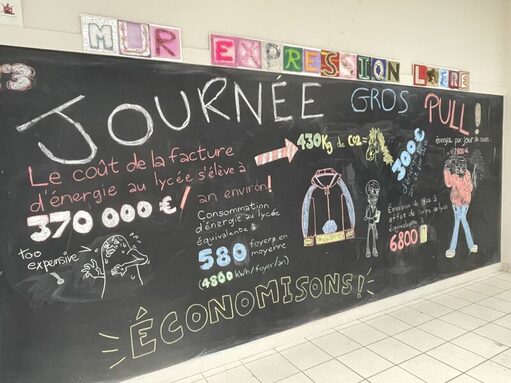 MUR EXPRESSION LIBRE
N°3
JOURNÉE GROS PULL!
Le coût de la facture
d'énergie au lycée s'élève à
370 000 €/
an environ!
too
expensive
Consommation
d'énergie au lycée
équivalente à
580 foyers en
moyenne
(4800 kWh/foyer/an)
430 kg de CO2 =
300€
énergie par jour de cours
2300 €
Emission de gaz à
effet de serre au lycée
équivalente
6800
ÉCONOMISONS!